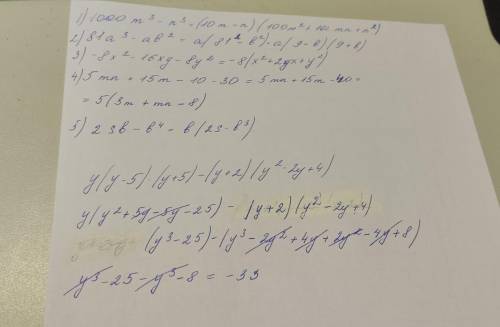 1) 1000 m³ - n³ = (10m - n) (100m² + 10mn + n²)
2) 81a³ - ab² = a(81² - b²) = a(9-b)(9+b)
3) -8x² - 16xy - 8y² = -8(x² + 2yx + y²)
4) 5mn + 15m - 10 - 30 = 5mn + 15m - 40 =
= 5(3m + mn - 8)
5) 23b - b⁴ = b(23 - b³)
y(y-5)(y+5) - (y+2)(y² - 2y + 4)
y(y² + 5y - 5y - 25) - (y+2)(y² - 2y + 4)
(y³ - 25) - (y³ - 2y² + 4y + 2y² - 4y + 8)
y³ - 25 - y³ - 8 = -33